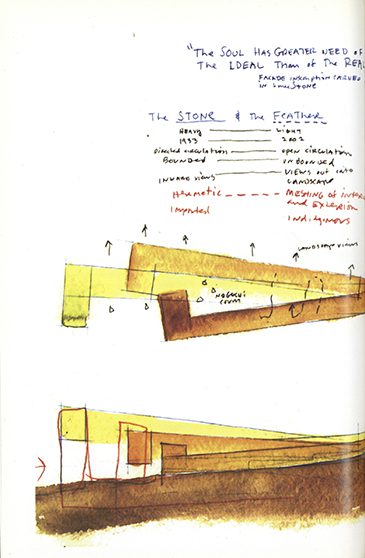 "The SOUL HAS GREATER NEED OF
The IDEAL Than of The REAL
FACADE INSCRIPTION CARVED
IN STONE
The STONE & The FEATHER
HEAVY LIGHT
1933 2002
Directed circulation OPEN CIRCULATION
BOUNDED UNBOUNDED
INWARD VIEWS VIEWS OUT INTO
LANDSCAPE
Hermetic MESHING OF INTERI
and EXTERIOR
Imported INDIGENOUS
LANDSCAPE VIEWS
NOGUCHI
COURT